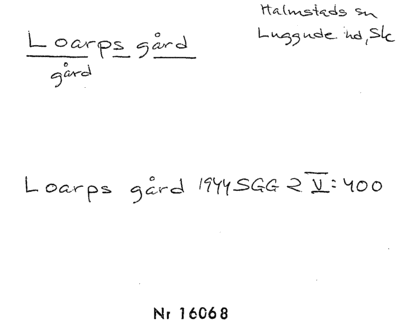 Loarps gård
gård
Halmstads sn
Luggude hd, Sk
Loarps gård 1944 SGG 2 V:400
Nr 16068